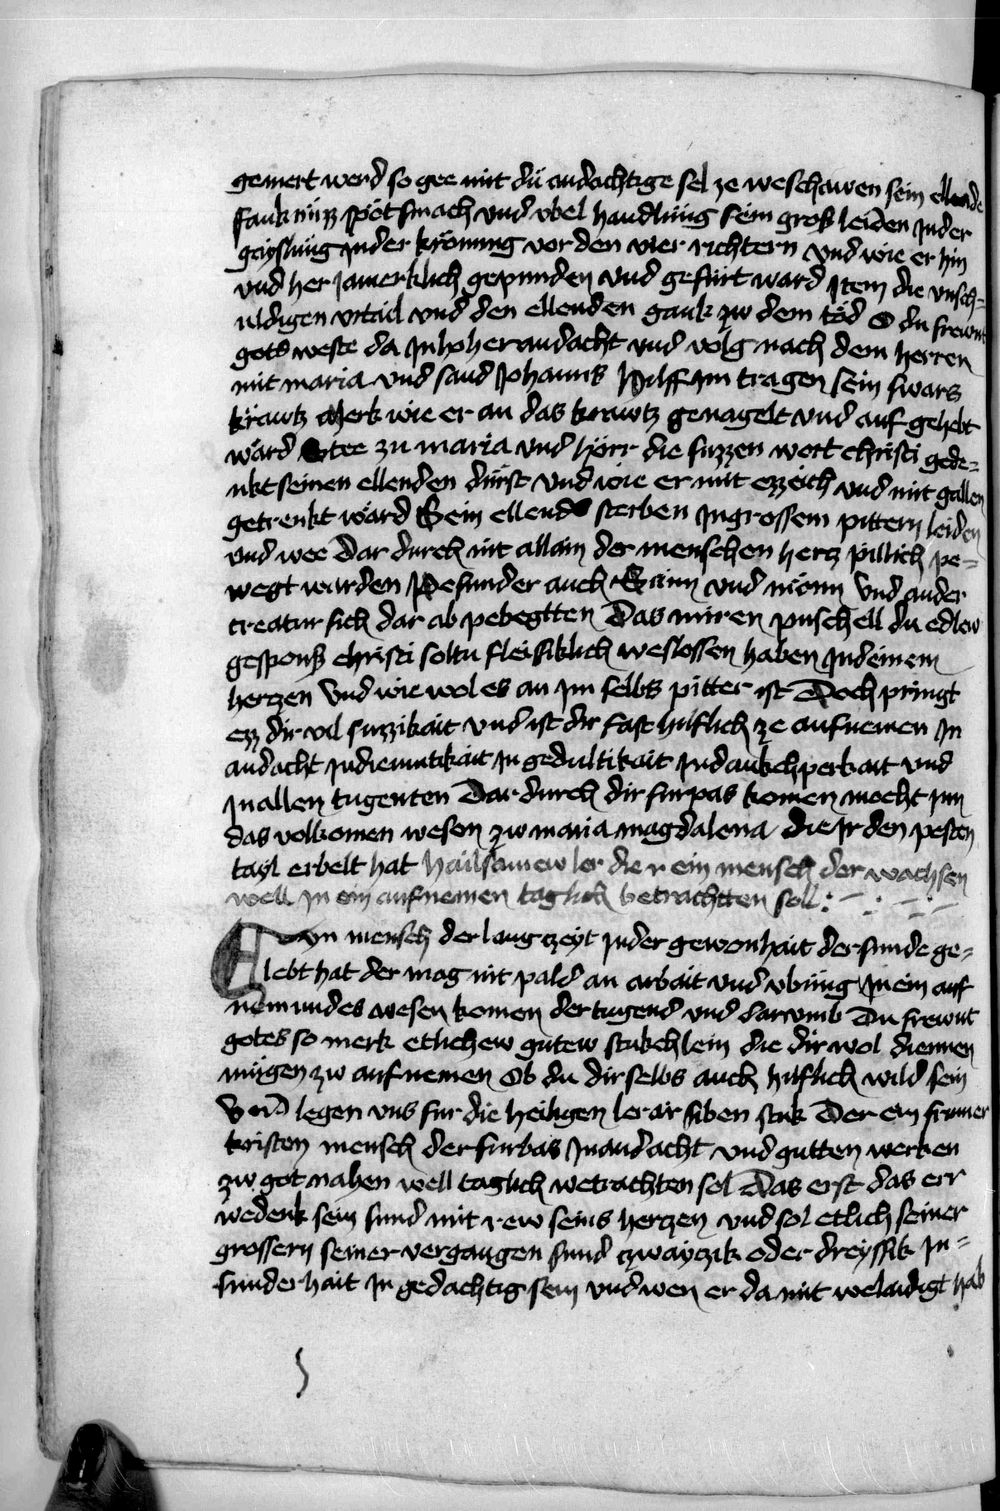 gemert werd so gee mit dü andachtige sel ze weschawen sein ellende
fanknüzz spöt smach vnd vbel handlüng sein groß leiden jn der
gayslüng jn der krönung vor den vier richtern vnd wie er hin
vnd her jamerklich gepunden vnd gefürt ward jtem die vnsch=
uldigen vrtail vnd den ellenden gank zw dem töd O du frewnt
gots weste da jn hoher andacht vnd volg nach dem herren
mit maria vnd sand johanns hilff jm tragen sein swars
kräwtz Merk wie er an das krawtz genagelt vnd auf gehebt
wärd Stee zu maria vnd hörr die suzzen wort christi gede=
nkt seinen ellenden dürst vnd wie er mit ezzeich vnd mit gallen
getrenkt ward Sein ellends sterben jn grossem pittern leiden
vnd wee Dar durch nit allain der menschen hertz pillich pe=
wegt wurden Pesunder auch Sunn vnd mönn vnd ander
creatur sich dar ab pebegtten Das mirren puschell du edlew
gesponß christi soltu fleissiklich weslossen haben jn deinem
hertzen Vnd wie wol es an jm selbs pitter ist Doch pringt
ezz dir vil suzzikait vnd ist dir fast hilflich ze aufnemen jn
andacht jn diemutikait jn gedultikait jn dankchperkait vnd
jn allen tugenten Dar durch dir furpas komen mocht jnn
das volkomen wesen zw maria magdalena die jr den pesten
tayl erbelt hat hailsamew ler die r ein mensch der wachsen
well jn ein aufnemen taglich betrachtten soll :~
Eyn mensch der lang czeyt jn der gewonhait der sunde ge=
lebt hat der mag nit pald an arbait vnd vbüng jn ein auf
nemundes wesen komen der tugend vnd darvmb Du frewnt
gotes so merk etlichew gutew stukchlein die dir wol diennen
mügen zw aufnemen Ob du dir selbs auch hilflich wild sein
Vnd legen vns fur die heiligen lerär siben stuk Der ein frumer
kristen mensch der furbas jn andacht vnd gutten werken
zw got nahen well taglich wetrachten sol Das erst das err
wedenk sein sund mit rew seins hertzen vnd sol etlich seiner
grossern seiner vergangen sund czwayczik oder dreyssik jn=
sunderhait jn gedachtig sein vnd wen er da mit welaidigt hab